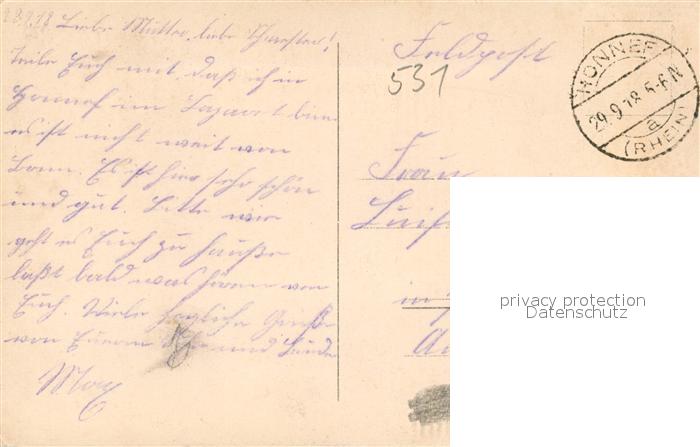 28.9.18 Liebe Mutter, liebe Schwester!
Teile Euch mit, daß ich in
Honnef im Lazarett bin
es ist nicht weit von
Bonn. Es ist hier sehr schön
und gut. Bitte wie
geht es Euch zu Hauße
laßt bald was hören von
Euch. Viele herzliche Grüße
von Eurem Sohn und Bruder
Max
Feldpost
531
HONNEF
29.9.18.5-6N
a
(RHEIN)
Frau
in
privacy protection
Datenschutz